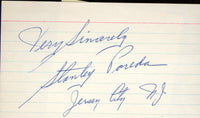 Very Sincerely
Stanley Poreda
Jersey City NJ